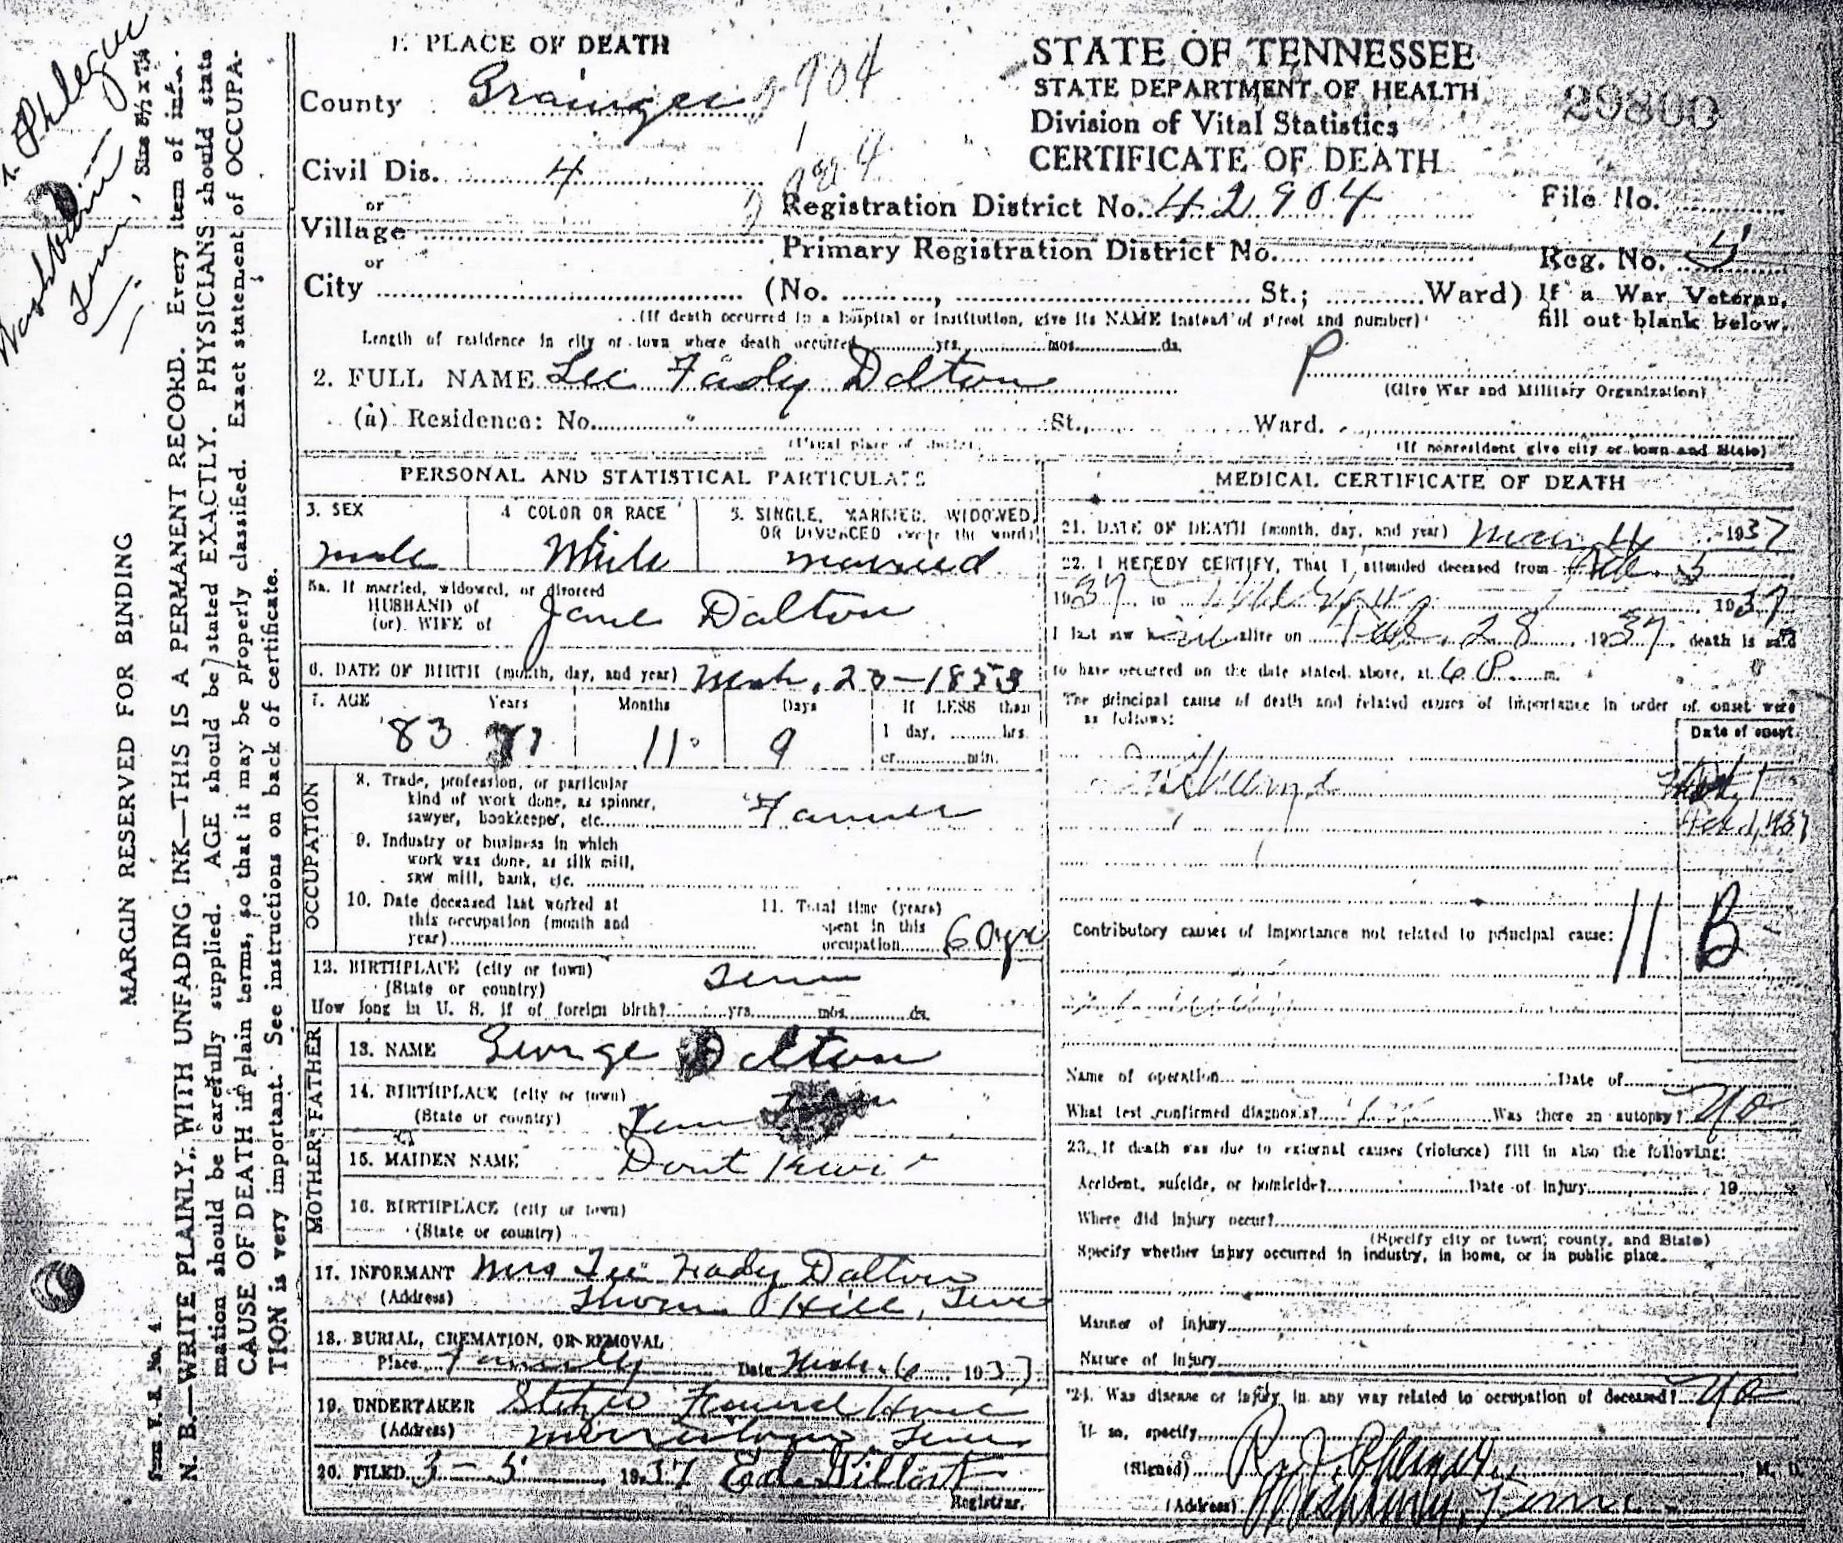 1. PLACE OF DEATH
County Grainger 904
Civil Dis. 4 904
or
Village
or
City (No. , St.; Ward)
(If death occurred in a hospital or institution, give its NAME instead of street and number)
Length of residence in city or town where death occurred yrs. mos. ds.
STATE OF TENNESSEE
STATE DEPARTMENT OF HEALTH
Division of Vital Statistics
CERTIFICATE OF DEATH
29800
Registration District No. 42904
File No.
Primary Registration District No.
Reg. No. 5
If a War Veteran,
fill out blank below.
2. FULL NAME Lee Fady Dalton
P
(Give War and Military Organization)
(a) Residence: No. St., Ward.
(Usual place of abode)
(If nonresident give city or town and State)
PERSONAL AND STATISTICAL PARTICULARS
3. SEX
male
4 COLOR OR RACE
White
5. SINGLE, MARRIED, WIDOWED,
OR DIVORCED (write the word)
married
5a. If married, widowed, or divorced
HUSBAND of
(or) WIFE of
Jane Dalton
6. DATE OF BIRTH (month, day, and year) Mch. 23-1853
7. AGE Years Months Days If LESS than
83 11 9 1 day, hrs.
or min.
OCCUPATION
8. Trade, profession, or particular
kind of work done, as spinner,
sawyer, bookkeeper, etc. Farmer
9. Industry or business in which
work was done, as silk mill,
saw mill, bank, etc.
10. Date deceased last worked at
this occupation (month and
year)
11. Total time (years)
spent in this
occupation 60 yrs
12. BIRTHPLACE (city or town) Tenn
(State or country)
How long in U. S. if of foreign birth? yrs. mos. ds.
FATHER
13. NAME George Dalton
14. BIRTHPLACE (city or town)
(State or country) Tenn
MOTHER
15. MAIDEN NAME Dont Know
16. BIRTHPLACE (city or town)
(State or country)
17. INFORMANT Mrs Lee Fady Dalton
(Address) Thorn Hill, Tenn
18. BURIAL, CREMATION, OR REMOVAL
Place Family Date Mch. 6 1937
19. UNDERTAKER Funeral Home
(Address) Morristown Tenn
20. FILED 3-5 1937
Registrar.
MEDICAL CERTIFICATE OF DEATH
21. DATE OF DEATH (month, day, and year) 4 1937
22. I HEREBY CERTIFY, That I attended deceased from Feb. 3
1937 to 1937
I last saw him alive on Feb. 28 1937, death is said
to have occurred on the date stated above, at 6 P. m.
The principal cause of death and related causes of importance in order of onset were
as follows:
Date of onset
Contributory causes of importance not related to principal cause:
11 B
Name of operation Date of
What test confirmed diagnosis? Was there an autopsy? No
23. If death was due to external causes (violence) fill in also the following:
Accident, suicide, or homicide? Date of injury 19
Where did injury occur?
(Specify city or town, county, and State)
Specify whether injury occurred in industry, in home, or in public place.
Manner of injury
Nature of injury
24. Was disease or injury in any way related to occupation of deceased? No
If so, specify
(Signed) M. D.
(Address) Washburn, Tenn
MARGIN RESERVED FOR BINDING
N. B.—WRITE PLAINLY, WITH UNFADING INK—THIS IS A PERMANENT RECORD. Every item of infor-
mation should be carefully supplied. AGE should be stated EXACTLY. PHYSICIANS should state
CAUSE OF DEATH in plain terms, so that it may be properly classified. Exact statement of OCCUPA-
TION is very important. See instructions on back of certificate.
Form V. S. No. 4
Washburn
Tenn